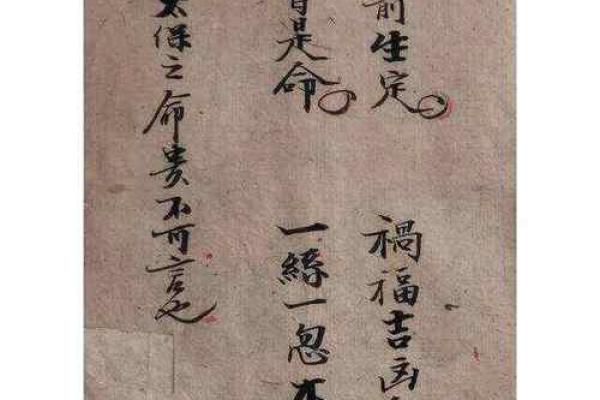 前生定 禍福吉凶
皆是命 一絲一忽不
太保之命貴不可言也